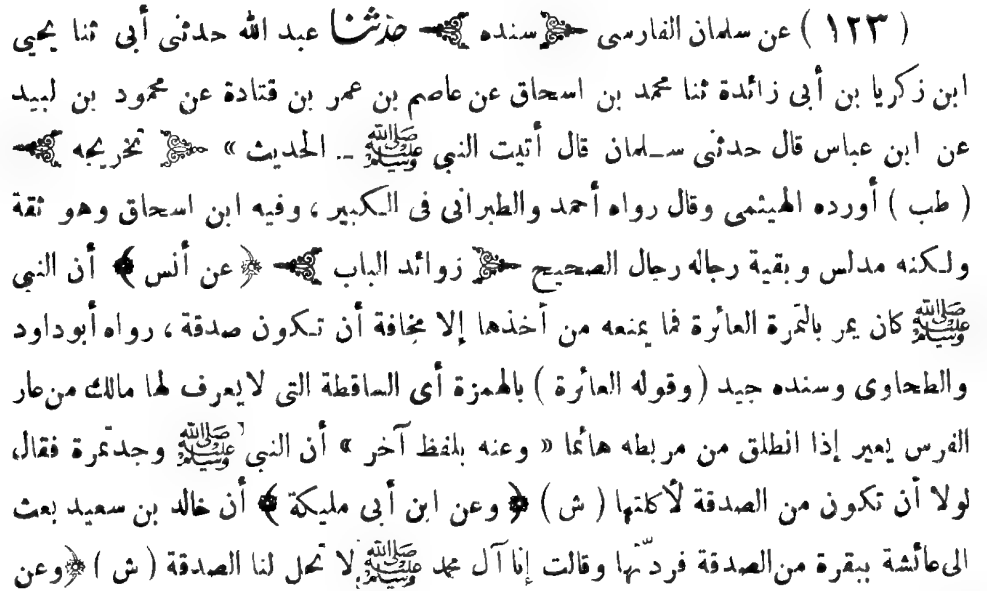 ( ١٢٣ ) عن سلمان الفارسى ﴿ سنده ﴾ حدثنا عبد الله حدثنى أبى ثنا يحيى
ابن زكريا بن أبى زائدة ثنا محمد بن اسحاق عن عاصم بن عمر بن قتادة عن محمود بن لبيد
عن ابن عباس قال حدثنى سلمان قال أتيت النبى ﷺ .. الحديث » ﴿ تخريجه ﴾
( طب ) أورده الهيثمى وقال رواه أحمد والطبرانى فى الكبير ، وفيه ابن اسحاق وهو ثقة
ولكنه مدلس وبقية رجاله رجال الصحيح ﴿ زوائد الباب ﴾ ﴿ عن أنس ﴾ أن النبى
ﷺ كان يمر بالتمرة العائرة فما يمنعه من أخذها إلا مخافة أن تكون صدقة ، رواه أبوداود
والطحاوى وسنده جيد ( وقوله العائرة ) بالهمزة أى الساقطة التى لايعرف لها مالك من عار
الفرس يعير إذا انطلق من مربطه هائما « وعنه بلفظ آخر » أن النبى ﷺ وجد تمرة فقال
لولا أن تكون من الصدقة لأكلتها ( ش ) ﴿ وعن ابن أبى مليكة ﴾ أن خالد بن سعيد بعث
الى عائشة ببقرة من الصدقة فردّتها وقالت إنا آل محمد ﷺ لا تحل لنا الصدقة ( ش ) ﴿ وعن